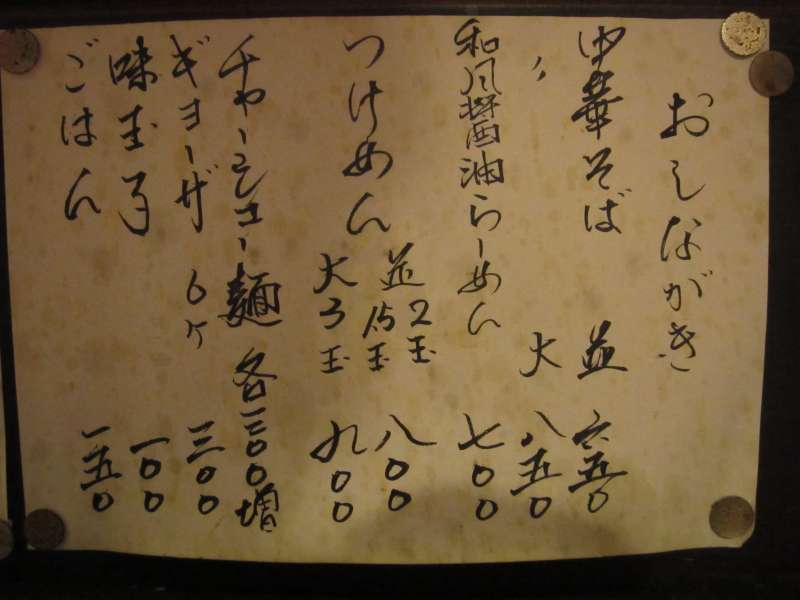 おしながき
中華そば 並 六五〇
〃 大 八五〇
和風醤油らーめん 七〇〇
つけめん 並 2玉 1.5玉 八〇〇
大 3玉 九〇〇
チャーシュー麺 各三〇〇増
ギョーザ 6ヶ 三〇〇
味玉子 一〇〇
ごはん 一五〇